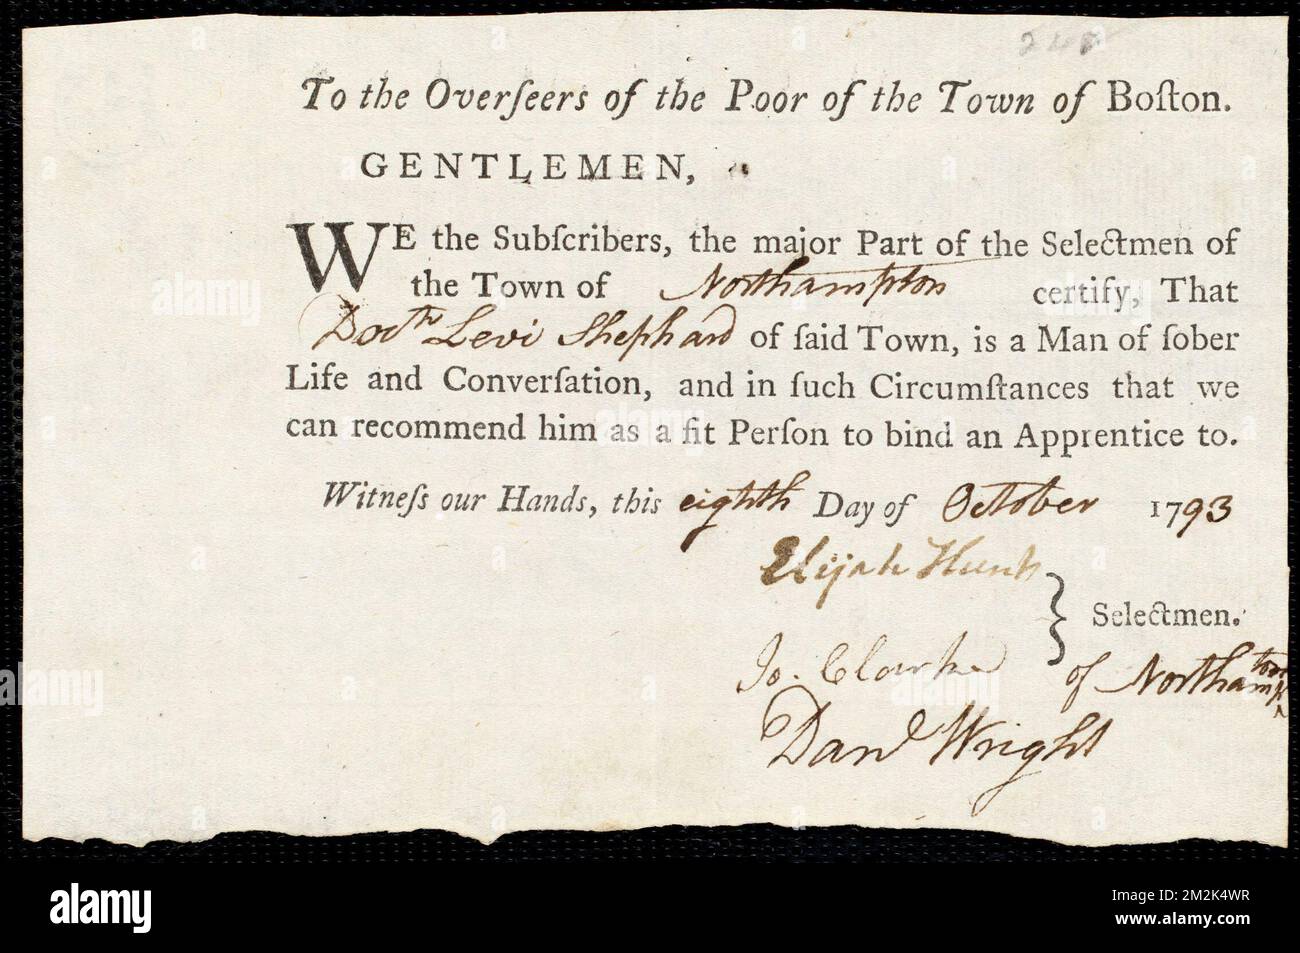 248
To the Overſeers of the Poor of the Town of Boſton.
GENTLEMEN,
WE the Subſcribers, the major Part of the Selectmen of
the Town of Northampton certify, That
Doctr Levi Shephard of ſaid Town, is a Man of ſober
Life and Converſation, and in ſuch Circumſtances that we
can recommend him as a fit Perſon to bind an Apprentice to.
Witneſs our Hands, this eighth Day of October 1793
Elijah Hunt
Selectmen.
Jo. Clarke
of Northampton
Danl Wright
alamy
Image ID: 2M2K4WR
www.alamy.com